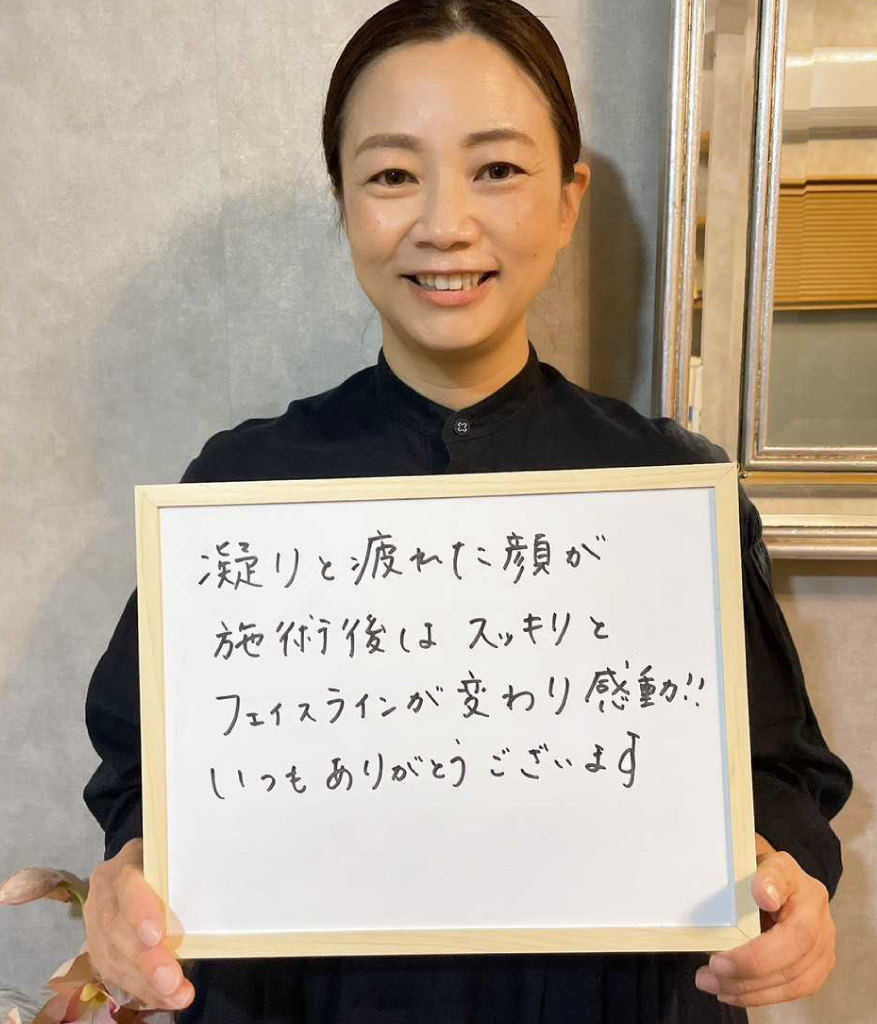 凝りと疲れた顔が
施術後は スッキリと
フェイスラインが変わり感動!!
いつもありがとうございます